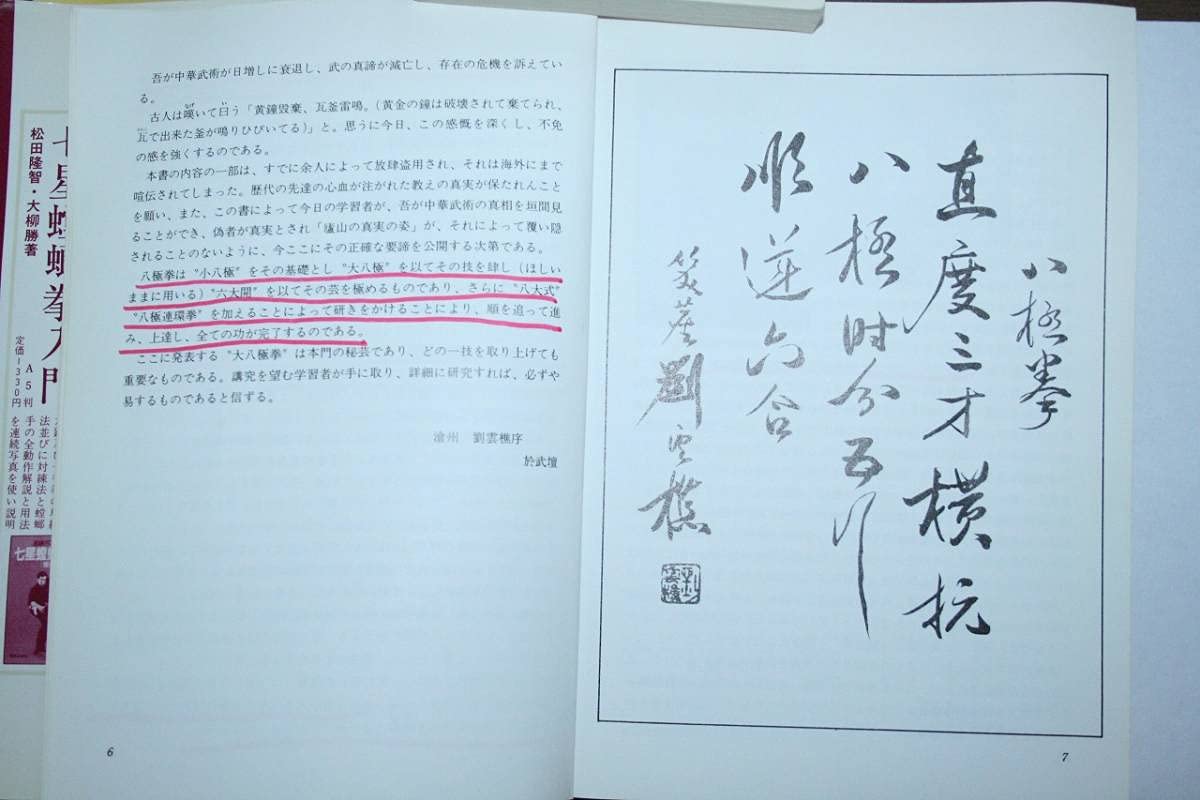 吾が中華武術が日増しに衰退し、武の真諦が滅亡し、存在の危機を訴えてい
る。
古人は嘆いて曰う「黄鐘毀棄、瓦釜雷鳴。(黄金の鐘は破壊されて棄てられ、
瓦で出来た釜が鳴りひびいてる)」と。思うに今日、この感慨を深くし、不免
の感を強くするのである。
本書の内容の一部は、すでに余人によって放肆盗用され、それは海外にまで
喧伝されてしまった。歴代の先達の心血が注がれた教えの真実が保たれんこと
を願い、また、この書によって今日の学習者が、吾が中華武術の真相を垣間見
ることができ、偽者が真実とされ「廬山の真実の姿」が、それによって覆い隠
されることのないように、今ここにその正確な要諦を公開する次第である。
八極拳は〝小八極〟をその基礎とし〝大八極〟を以てその技を肆し(ほしい
ままに用いる)〝六大開〟を以てその芸を極めるものであり、さらに〝八大式〟
〝八極連環拳〟を加えることによって研きをかけることにより、順を追って進
み、上達し、全ての功が完了するのである。
ここに発表する〝大八極拳〟は本門の秘芸であり、どの一技を取り上げても
重要なものである。講究を望む学習者が手に取り、詳細に研究すれば、必ずや
易するものであると信ずる。
滄州 劉雲樵序
於武壇
6
八極拳
直度三才橫抗
八極时分五行
順逆六合
笑塵劉雲樵
7
松田隆智・大柳勝著
定価1330円
A5判
法並びに対練法と螳螂
手の全動作解説と用法
を連続写真を使い説明